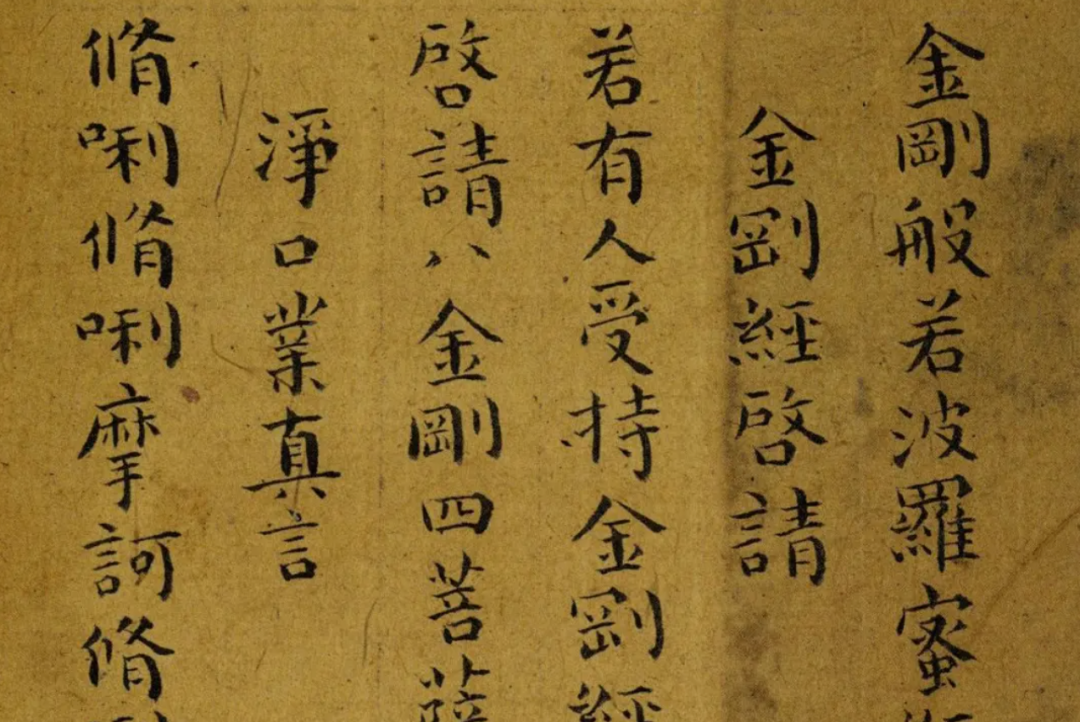 金剛般若波羅蜜
金剛經啓請
若有人受持金剛經
啓請八金剛四菩薩
淨口業真言
脩唎脩唎摩訶脩